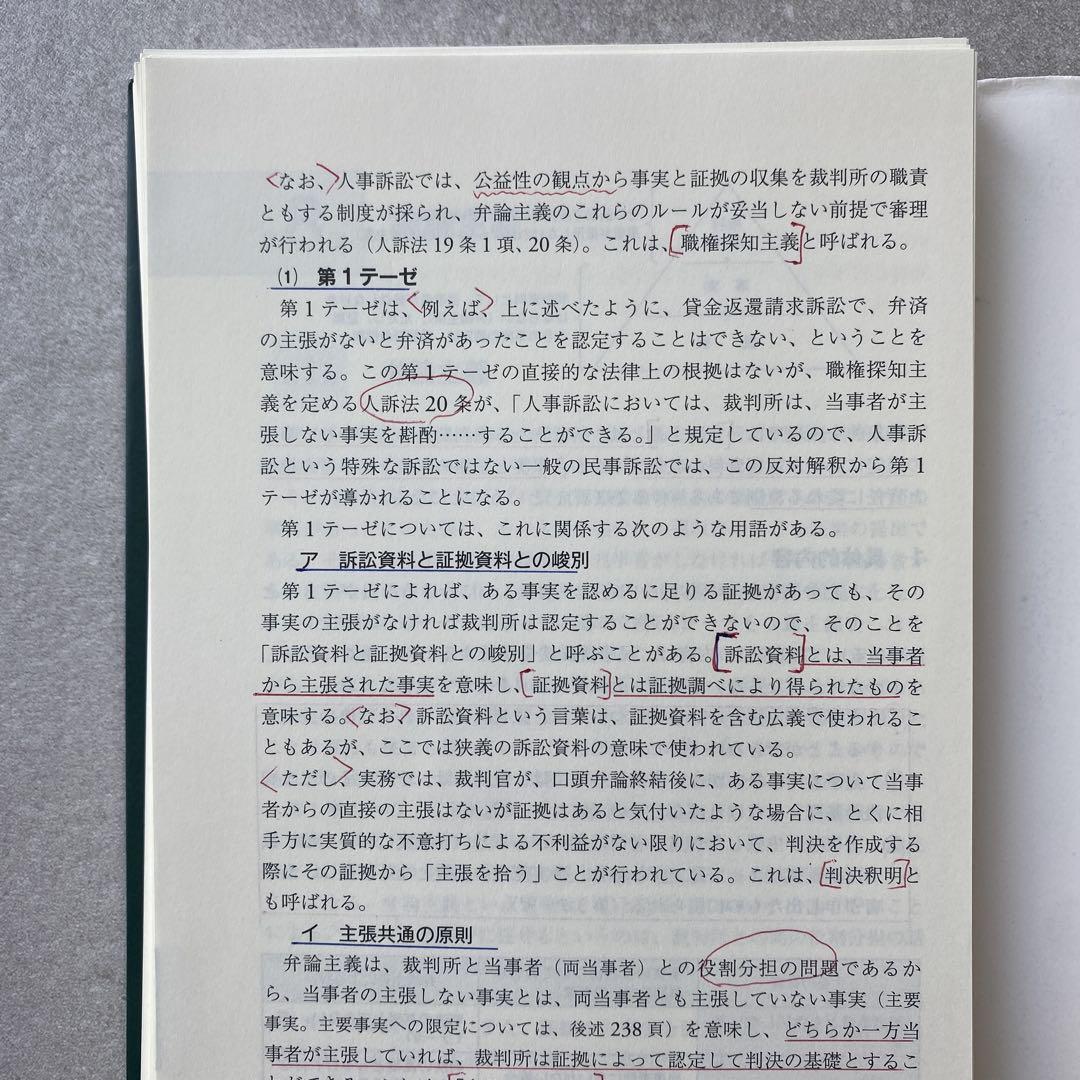 なお、人事訴訟では、公益性の観点から事実と証拠の収集を裁判所の職責
ともする制度が採られ、弁論主義のこれらのルールが妥当しない前提で審理
が行われる（人訴法19条1項、20条）。これは、職権探知主義と呼ばれる。
⑴　第1テーゼ
第1テーゼは、例えば、上に述べたように、貸金返還請求訴訟で、弁済
の主張がないと弁済があったことを認定することはできない、ということを
意味する。この第1テーゼの直接的な法律上の根拠はないが、職権探知主
義を定める人訴法20条が、「人事訴訟においては、裁判所は、当事者が主
張しない事実を斟酌……することができる。」と規定しているので、人事訴
訟という特殊な訴訟ではない一般の民事訴訟では、この反対解釈から第1
テーゼが導かれることになる。
第1テーゼについては、これに関係する次のような用語がある。
ア　訴訟資料と証拠資料との峻別
第1テーゼによれば、ある事実を認めるに足りる証拠があっても、その
事実の主張がなければ裁判所は認定することができないので、そのことを
「訴訟資料と証拠資料との峻別」と呼ぶことがある。訴訟資料とは、当事者
から主張された事実を意味し、証拠資料とは証拠調べにより得られたものを
意味する。なお、訴訟資料という言葉は、証拠資料を含む広義で使われるこ
ともあるが、ここでは狭義の訴訟資料の意味で使われている。
ただし、実務では、裁判官が、口頭弁論終結後に、ある事実について当事
者からの直接の主張はないが証拠はあると気付いたような場合に、とくに相
手方に実質的な不意打ちによる不利益がない限りにおいて、判決を作成する
際にその証拠から「主張を拾う」ことが行われている。これは、判決釈明と
も呼ばれる。
イ　主張共通の原則
弁論主義は、裁判所と当事者（両当事者）との役割分担の問題であるか
ら、当事者の主張しない事実とは、両当事者とも主張していない事実（主要
事実。主要事実への限定については、後述238頁）を意味し、どちらか一方当
事者が主張していれば、裁判所は証拠によって認定して判決の基礎とするこ